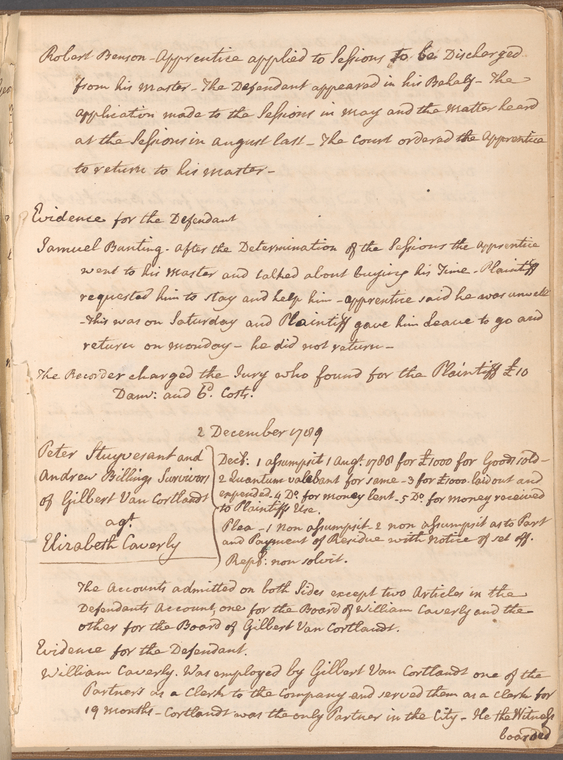 Robert Benson - Apprentice applied to Sessions to be Discharged
from his Master - The Defendant appeared in his Behalf - The
application made to the Sessions in May and the Matter heard
at the Sessions in August last - The Court ordered the Apprentice
to return to his Master -
Evidence for the Defendant
Samuel Bunting - After the Determination of the Sessions the Apprentice
went to his Master and talked about buying his Time - Plaintiff
requested him to stay and help him - apprentice said he was unwell
- This was on Saturday and Plaintiff gave him Leave to go and
return on Monday - he did not return -
The Recorder charged the Jury who found for the Plaintiff £10
Dam: and 6d. Costs.
2 December 1789
Peter Stuyvesant and
Andrew Billings Survivors
of Gilbert Van Cortlandt
agt.
Elizabeth Caverly
Decl: 1 assumpsit 1 Augt. 1788 for £1000 for Goods sold -
2 Quantum valebant for same - 3 for £1000 laid out and
expended. 4 Do. for money lent - 5 Do. for money received
to Plaintiffs Use.
Plea - 1 Non assumpsit 2 non assumpsit as to Part
and Payment of Residue with Notice of set off.
Repl: non solvit.
The Accounts admitted on both Sides except two Articles in the
Defendants Account, one for the Board of William Caverly and the
other for the Board of Gilbert Van Cortlandt.
Evidence for the Defendant.
William Caverly. Was employed by Gilbert Van Cortlandt one of the
Partners as a Clerk to the Company and served them as a Clerk for
19 months - Cortlandt was the only Partner in the City - He the Witness
boarded